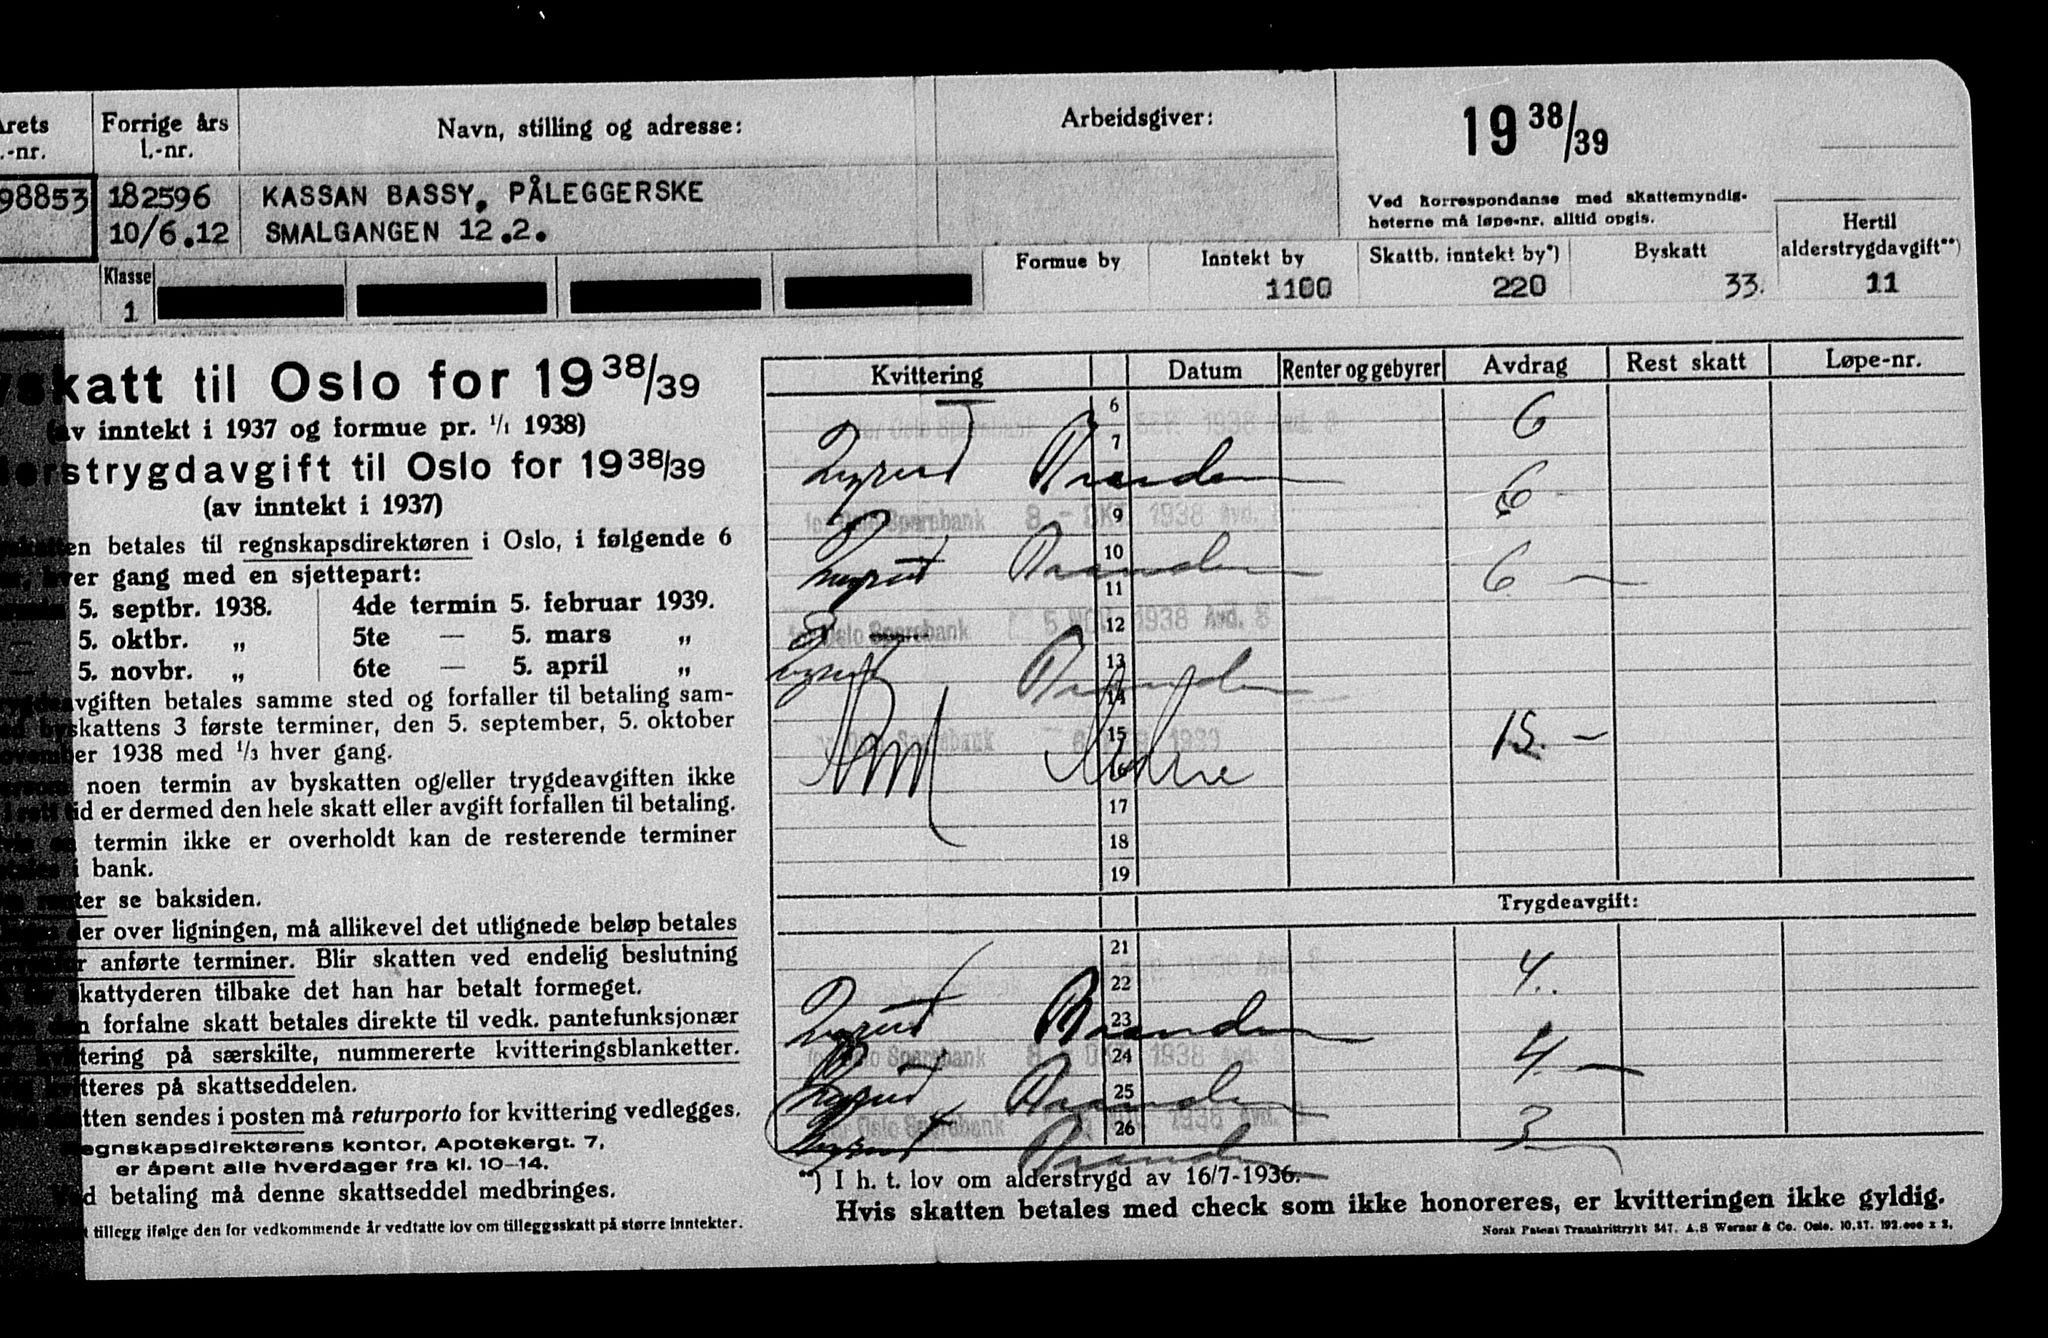 Arbeidsgiver:
19 38/39
Årets Forrige års Navn, stilling og adresse:
l.-nr. l.-nr.
98853 182596 KASSAN BASSY, PÅLEGGERSKE
10/6.12 SMALGANGEN 12.2.
Ved korrespondanse med skattemyndig-
heterne må løpe-nr. alltid opgis.
Klasse
1
Formue by Inntekt by Skattb. inntekt by*) Byskatt Hertil alderstrygdavgift**)
1100 220 33. 11
skatt til Oslo for 19 38/39
(av inntekt i 1937 og formue pr. 1/1 1938)
erstrygdavgift til Oslo for 19 38/39
(av inntekt i 1937)
betales til regnskapsdirektøren i Oslo, i følgende 6
hver gang med en sjettepart:
5. septbr. 1938. 4de termin 5. februar 1939.
— 5. oktbr. „ 5te — 5. mars „
— 5. novbr. „ 6te — 5. april „
avgiften betales samme sted og forfaller til betaling sam-
byskattens 3 første terminer, den 5. september, 5. oktober
november 1938 med 1/3 hver gang.
noen termin av byskatten og/eller trygdeavgiften ikke
tid er dermed den hele skatt eller avgift forfallen til betaling.
termin ikke er overholdt kan de resterende terminer
i bank.
renter se baksiden.
over ligningen, må allikevel det utlignede beløp betales
anførte terminer. Blir skatten ved endelig beslutning
skattyderen tilbake det han har betalt formeget.
forfalne skatt betales direkte til vedk. pantefunksjonær
kvittering på særskilte, nummererte kvitteringsblanketter.
kvitteres på skattseddelen.
skatten sendes i posten må returporto for kvittering vedlegges.
Regnskapsdirektørens kontor, Apotekergt. 7,
er åpent alle hverdager fra kl. 10–14.
Ved betaling må denne skattseddel medbringes.
tillegg ifølge den for vedkommende år vedtatte lov om tilleggsskatt på større inntekter.
Kvittering Datum Renter og gebyrer Avdrag Rest skatt Løpe-nr.
6 6
for Oslo Sparebank SEP. 1938 Avd. 8
7
6
9
for Oslo Sparebank 8 - OKT. 1938 Avd.
10
11 6 —
12
for Oslo Sparebank 5 NOV. 1938 Avd. 8
13
14
15 15. —
for Oslo Sparebank
17
18
19
Trygdeavgift:
21
22 4.
23
24 4. —
for Oslo Sparebank 8 - OKT. 1938
25
26 3 —
for Oslo Sparebank
**) I h. t. lov om alderstrygd av 16/7-1936.
Hvis skatten betales med check som ikke honoreres, er kvitteringen ikke gyldig.
Norsk Patent Transkrittrykt 347. A.S Werner & Co. Oslo. 10.37. 192.000 x 2.